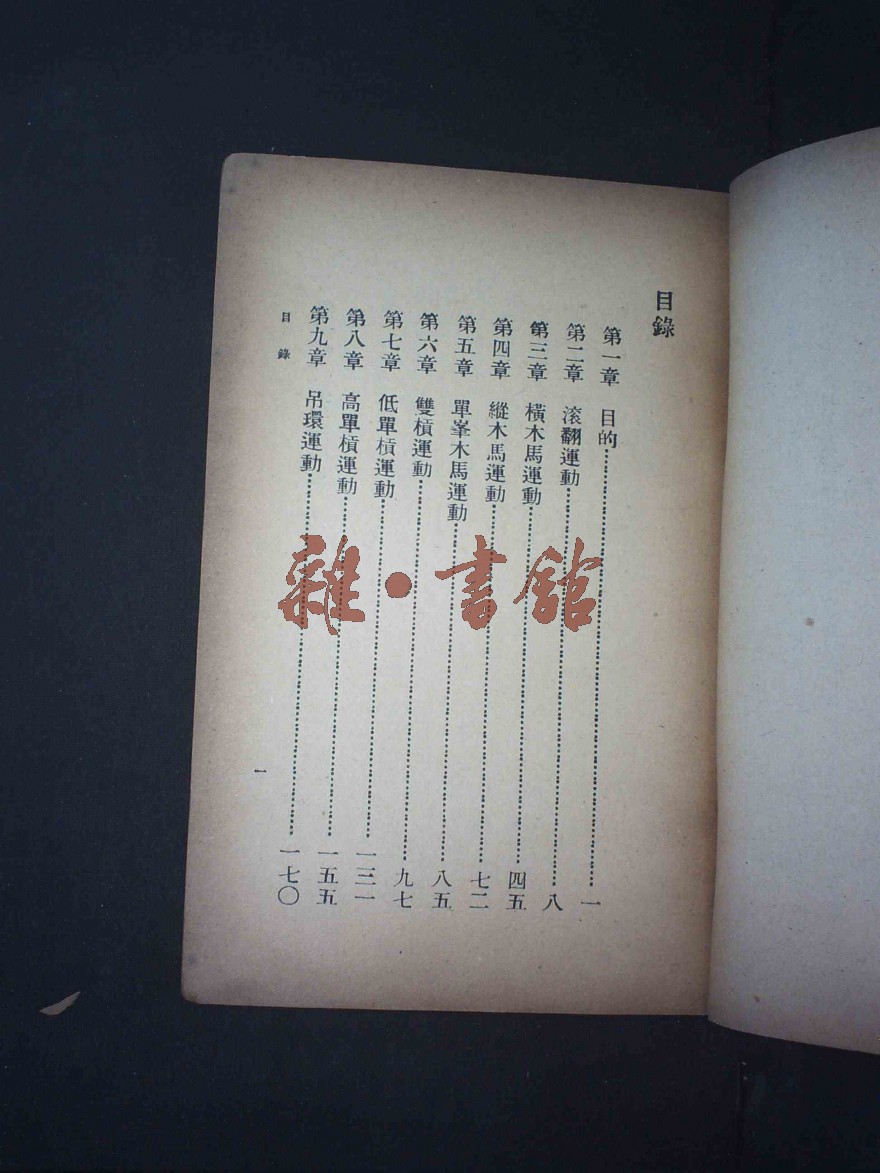 目錄
第一章　目的…………一
第二章　滚翻運動…………八
第三章　橫木馬運動…………四五
第四章　縱木馬運動…………七二
第五章　單峯木馬運動…………八五
第六章　雙槓運動…………九七
第七章　低單槓運動…………一三一
第八章　高單槓運動…………一五五
第九章　吊環運動…………一七〇
目錄
一
雜·書館